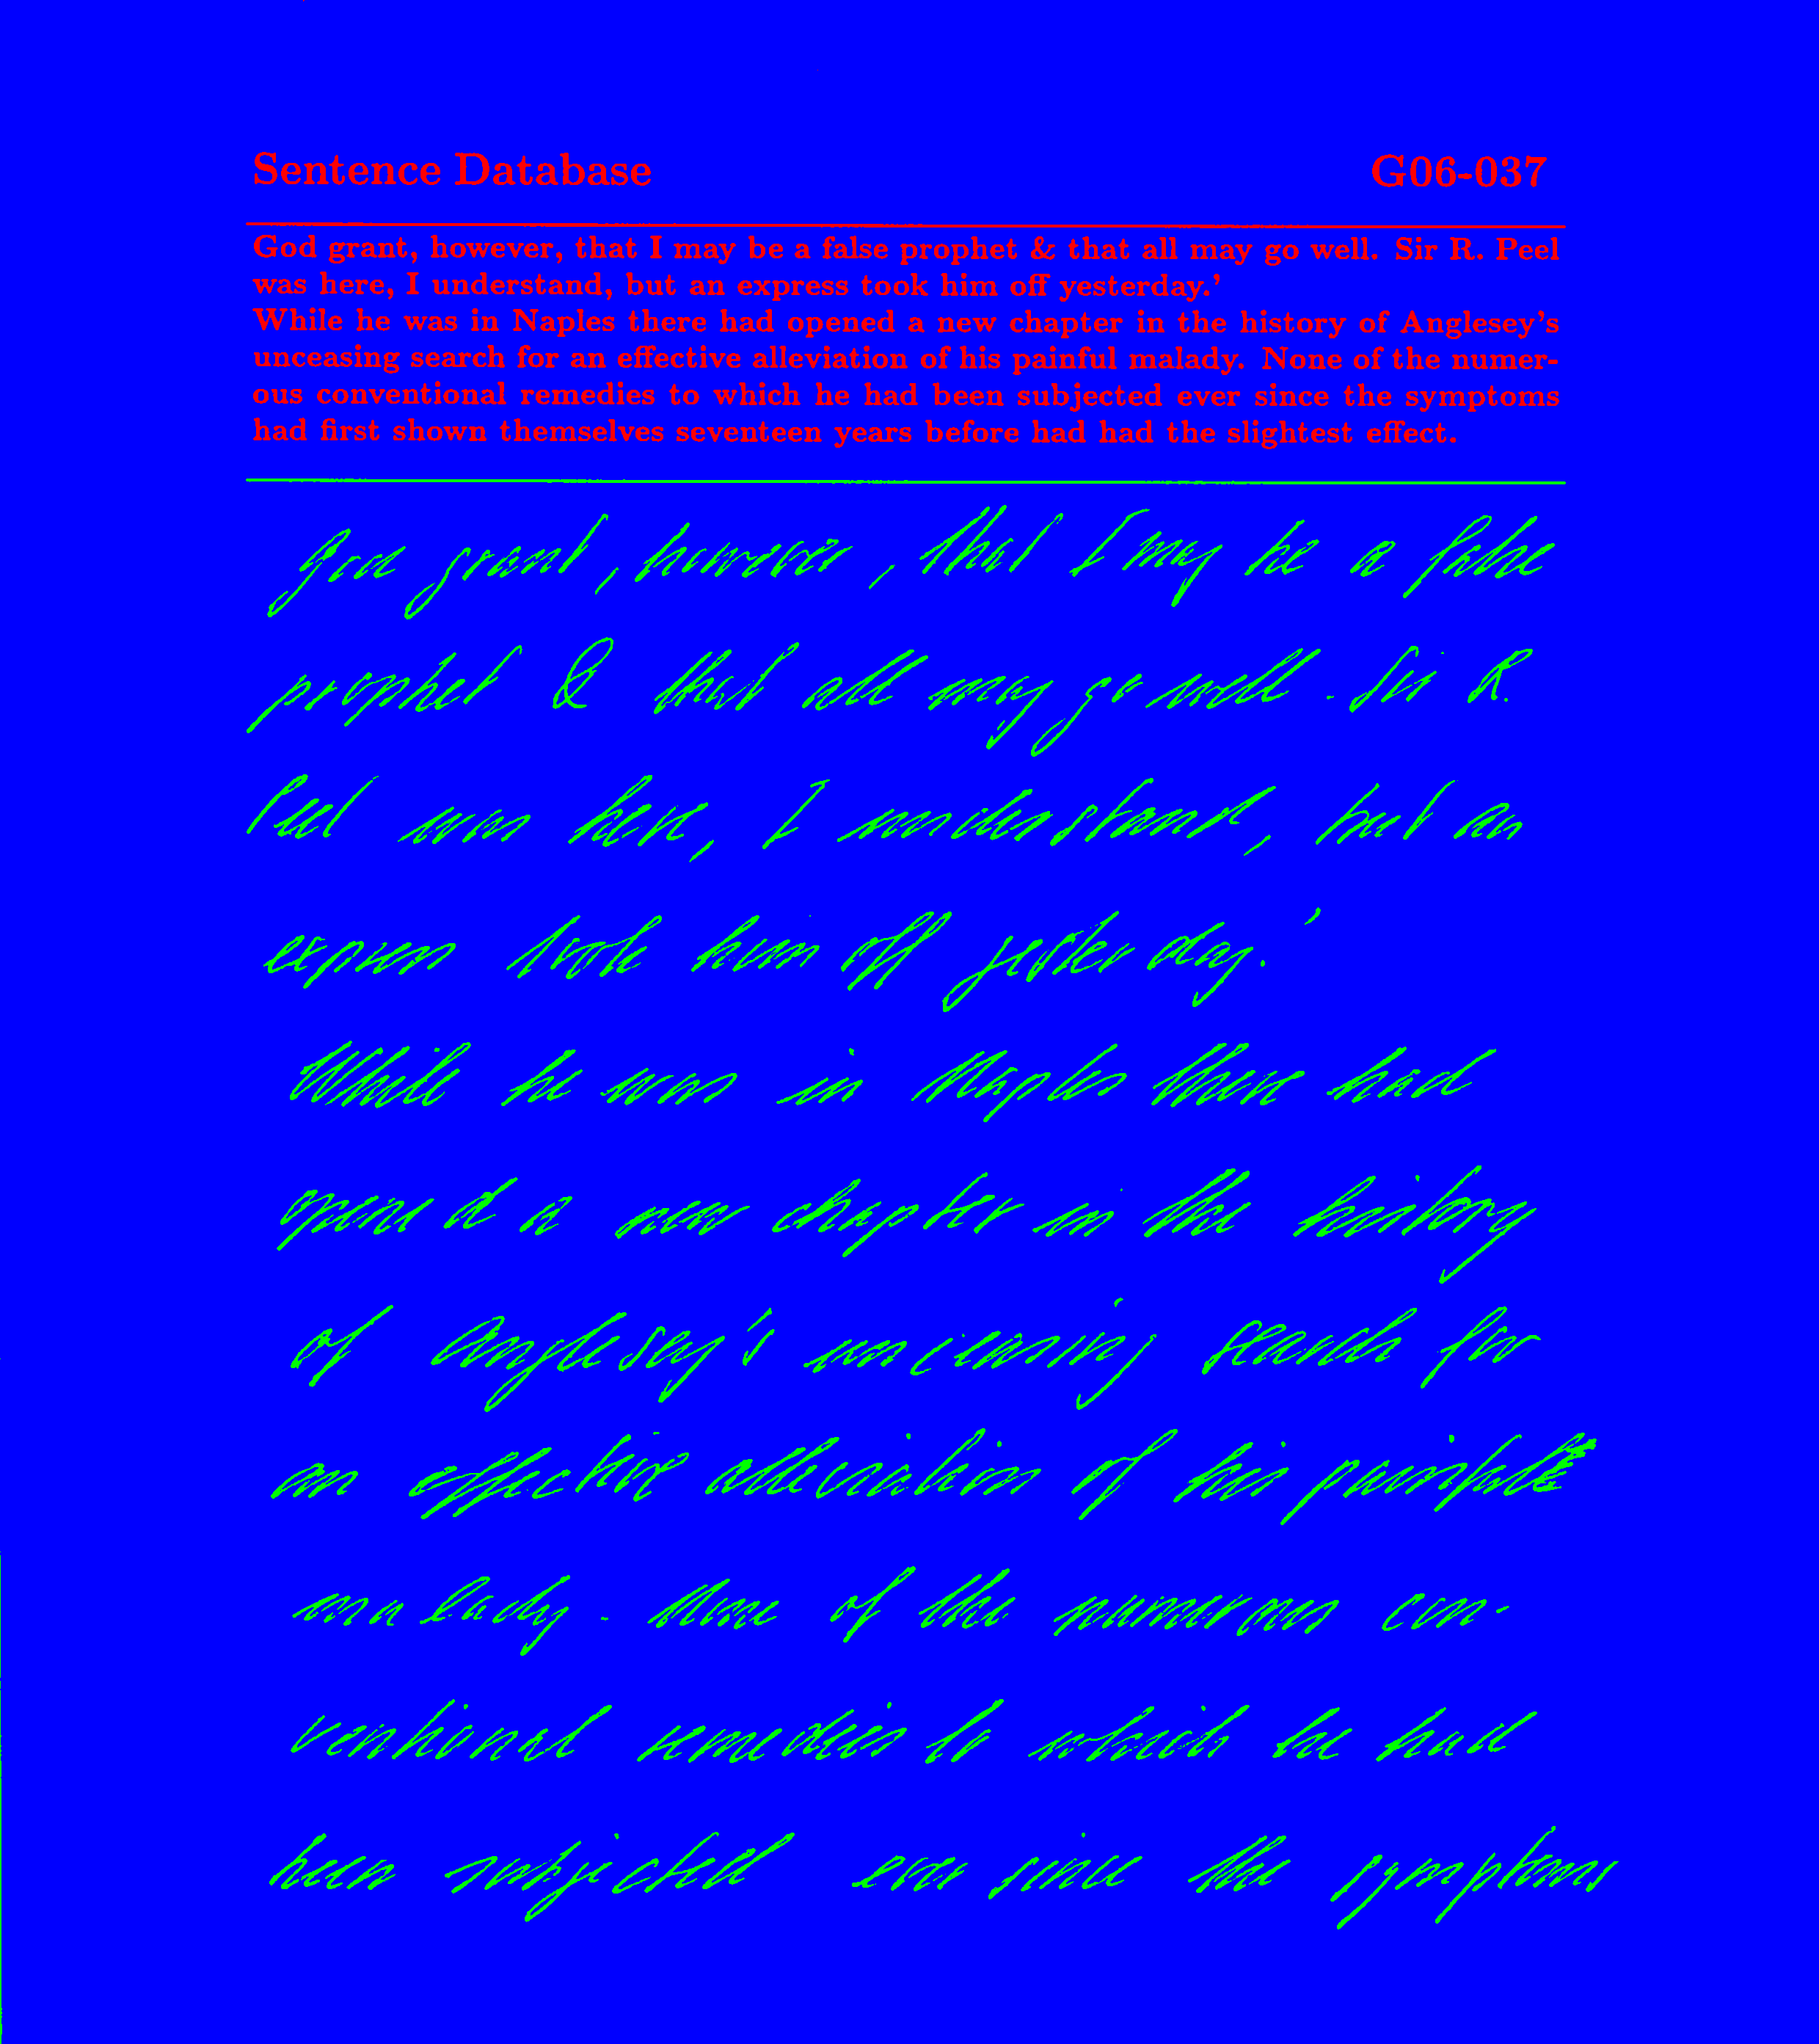 Sentence Database G06-037
God grant, however, that I may be a false prophet & that all may go well. Sir R. Peel
was here, I understand, but an express took him off yesterday.'
While he was in Naples there had opened a new chapter in the history of Anglesey's
unceasing search for an effective alleviation of his painful malady. None of the numer-
ous conventional remedies to which he had been subjected ever since the symptoms
had first shown themselves seventeen years before had had the slightest effect.
God grant, however, that I may be a false
prophet & that all may go well. Sir R.
Peel was here, I understand, but an
express took him off yesterday.'
While he was in Naples there had
opened a new chapter in the history
of Anglesey's unceasing search for
an effective alleviation of his painful
malady. None of the numerous con-
ventional remedies to which he had
been subjected ever since the symptoms